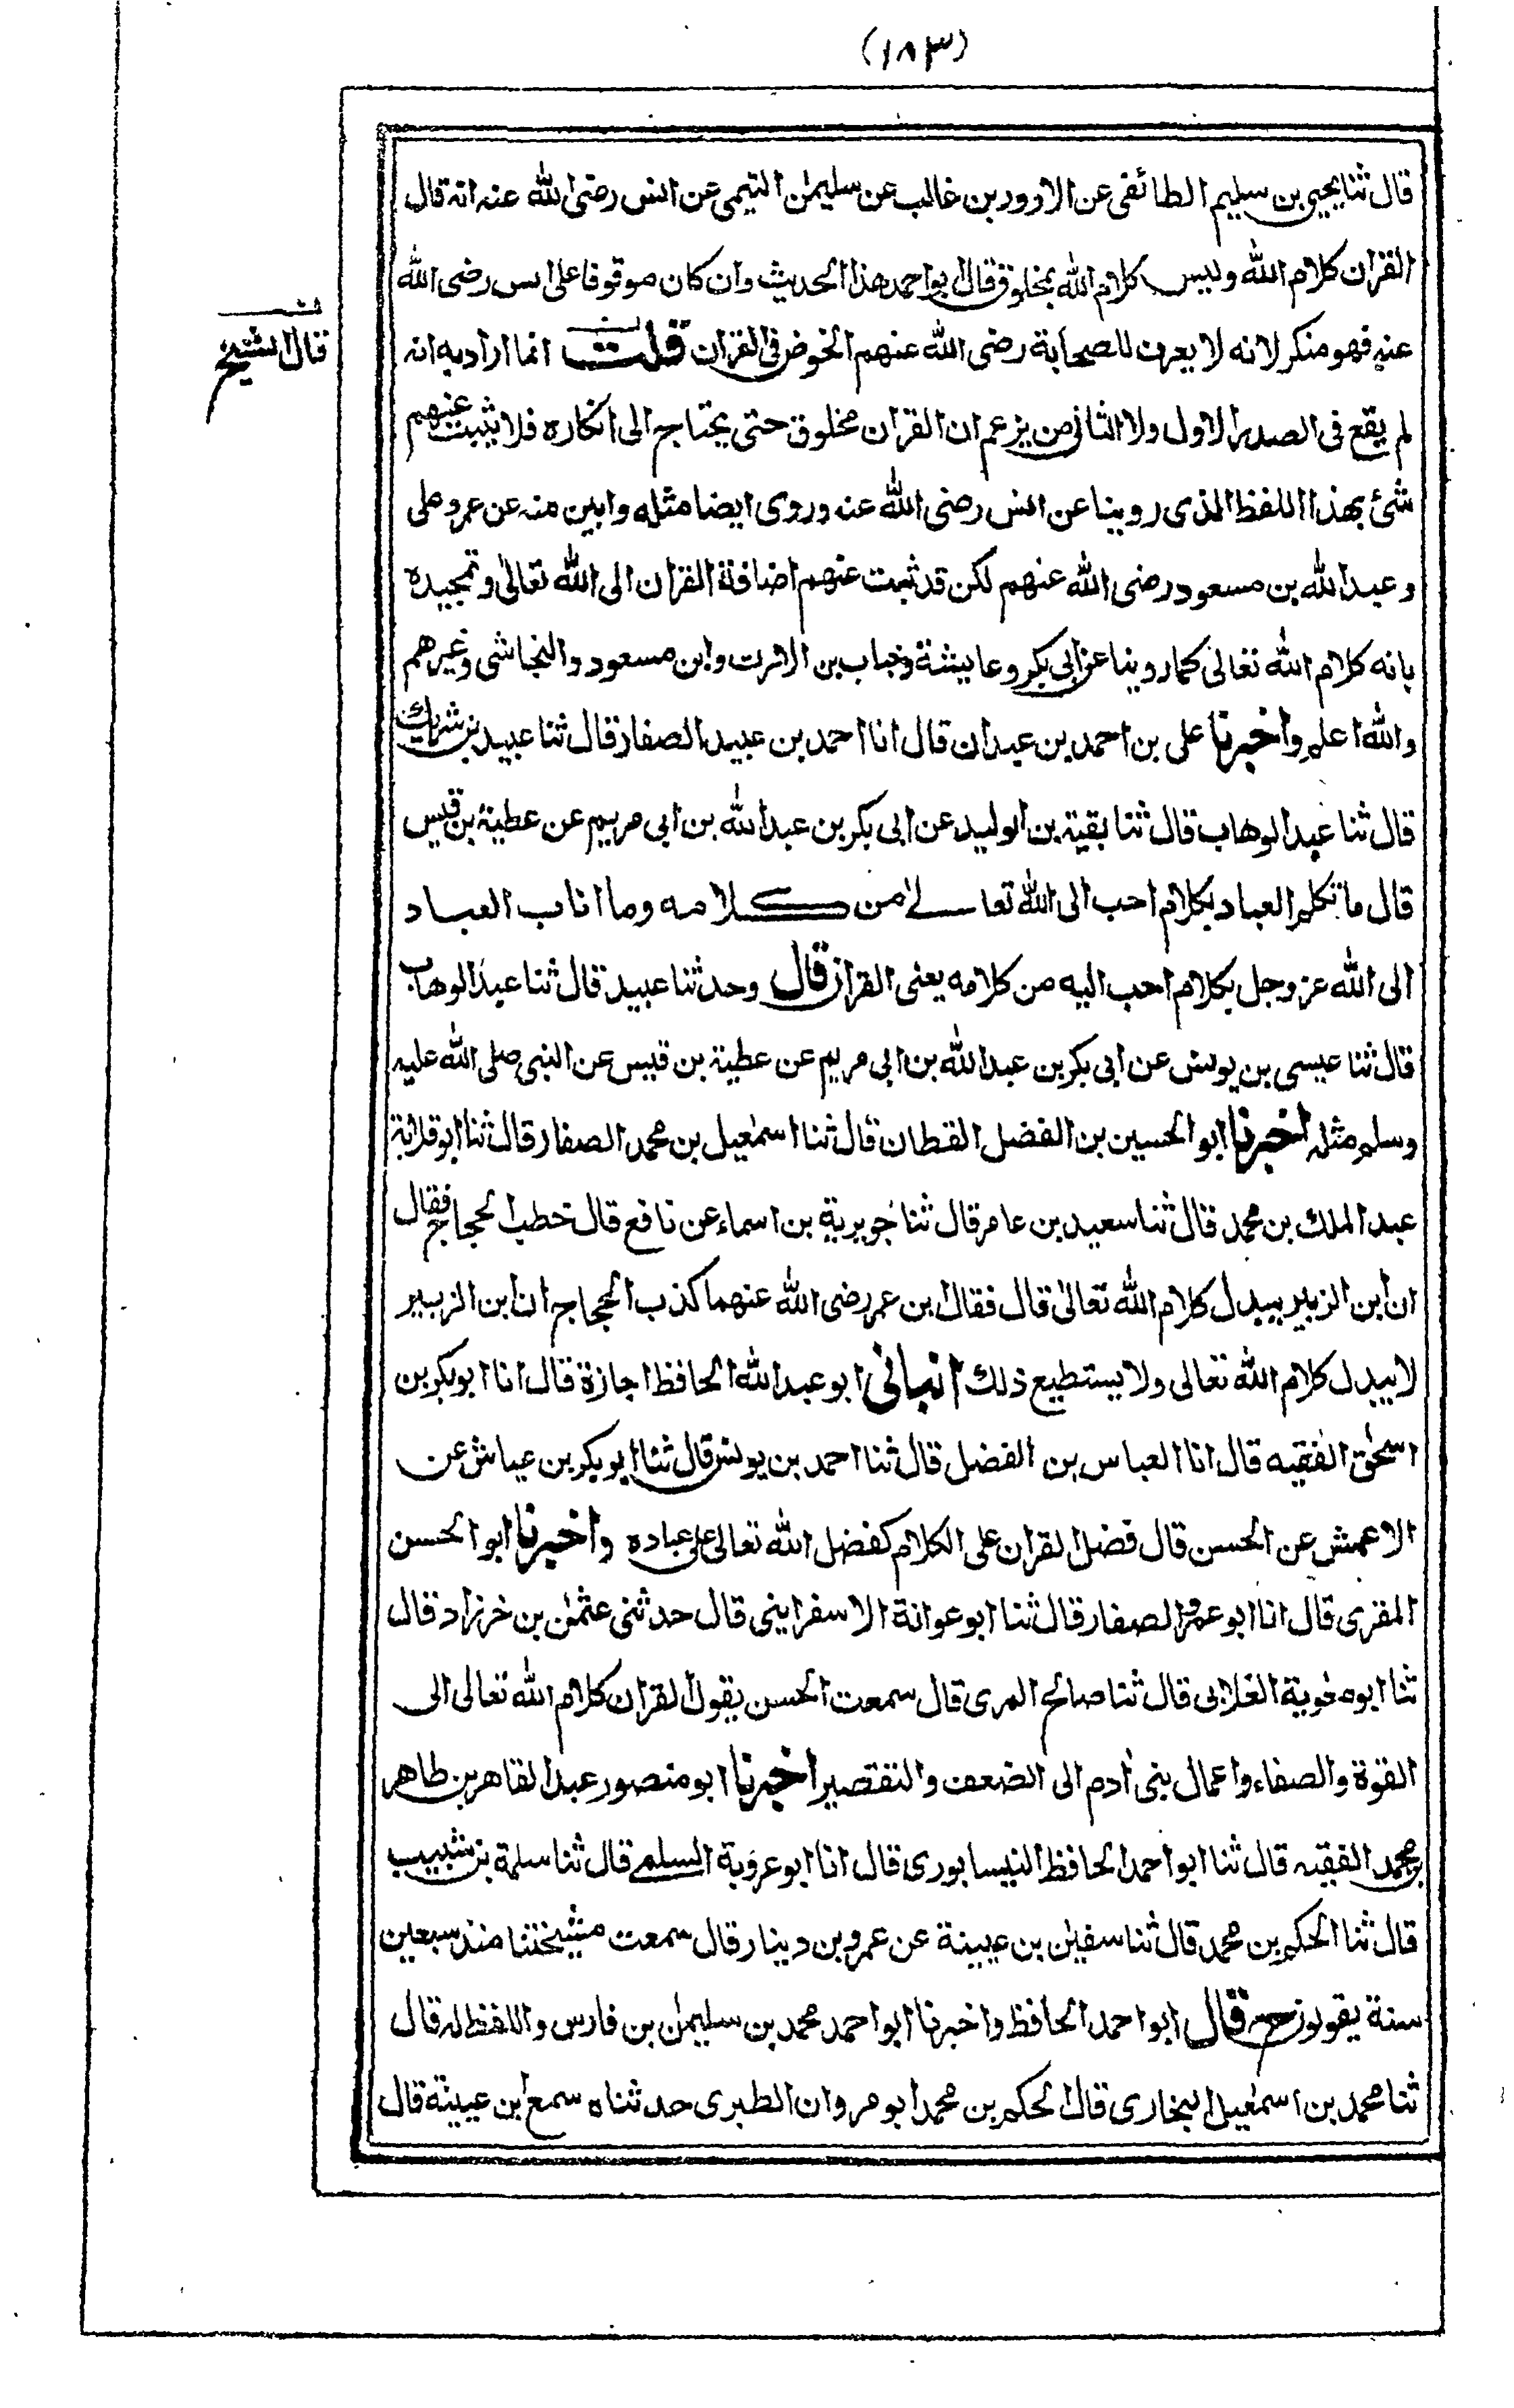 (١٨٣)
قال ثنا يحيى بن سليم الطائفى عن الازور بن غالب عن سليمٰن التيمى عن انس رضى الله عنه انه قال
القرآن كلام الله وليس كلام الله بمخلوق قال ابو احمد هذا الحديث وان كان موقوفا على انس رضى الله
عنه فهو منكر لانه لا يعرف للصحابة رضى الله عنهم الخوض فى القرآن قلت انما اراد به انه
قال الشيخ
لم يقع فى الصدر الاول ولا الثانى من يزعم ان القرآن مخلوق حتى يحتاج الى انكاره فلا يثبت عنهم
شئ بهذا اللفظ الذى روينا عن انس رضى الله عنه وروى ايضا مثله وابين منه عن عمر وعلى
وعبد الله بن مسعود رضى الله عنهم لكن قد ثبت عنهم اضافة القرآن الى الله تعالى وتمجيده
بانه كلام الله تعالى كما روينا عن ابى بكر وعايشة وخباب بن الارت وابن مسعود والنجاشى وغيرهم
والله اعلم واخبرنا على بن احمد بن عبدان قال انا احمد بن عبيد الصفار قال ثنا عبيد بن شريك
قال ثنا عبد الوهاب قال ثنا بقية بن الوليد عن ابى بكر بن عبد الله بن ابى مريم عن عطية بن قيس
قال ما تكلم العباد بكلام احب الى الله تعالى من كلامه وما اناب العباد
الى الله عز وجل بكلام احب اليه من كلامه يعنى القرآن قال وحدثنا عبيد قال ثنا عبد الوهاب
قال ثنا عيسى بن يونس عن ابى بكر بن عبد الله بن ابى مريم عن عطية بن قيس عن النبى صلى الله عليه
وسلم مثله اخبرنا ابو الحسين بن الفضل القطان قال ثنا اسمٰعيل بن محمد الصفار قال ثنا ابو قلابة
عبد الملك بن محمد قال ثنا سعيد بن عامر قال ثنا جويرية بن اسماء عن نافع قال خطب الحجاج فقال
ان ابن الزبير يبدل كلام الله تعالى قال فقال ابن عمر رضى الله عنهما كذب الحجاج ان ابن الزبير
لا يبدل كلام الله تعالى ولا يستطيع ذلك انبانى ابو عبد الله الحافظ اجازة قال انا ابو بكر بن
اسحٰق الفقيه قال انا العباس بن الفضل قال ثنا احمد بن يونس قال ثنا ابو بكر بن عياش عن
الاعمش عن الحسن قال فضل القرآن على الكلام كفضل الله تعالى على عباده واخبرنا ابو الحسن
المقرى قال انا ابو عمرو الصفار قال ثنا ابو عوانة الاسفراينى قال حدثنى عثمٰن بن خرزاد قال
ثنا ابو معٰوية الغلابى قال ثنا صالح المرى قال سمعت الحسن يقول القرآن كلام الله تعالى الى
القوة والصفاء واعمال بنى آدم الى الضعف والتقصير اخبرنا ابو منصور عبد القاهر بن طاهر
بن محمد الفقيه قال ثنا ابو احمد الحافظ النيسابورى قال انا ابو عروبة السلمى قال ثنا سلمة بن شبيب
قال ثنا الحكم بن محمد قال ثنا سفيٰن بن عيينة عن عمرو بن دينار قال سمعت مشيختنا منذ سبعين
سنة يقولون ح قال ابو احمد الحافظ واخبرنا ابو احمد محمد بن سليمٰن بن فارس واللفظ له قال
ثنا محمد بن اسمٰعيل البخارى قال الحكم بن محمد ابو مروان الطبرى حدثناه سمع ابن عيينة قال